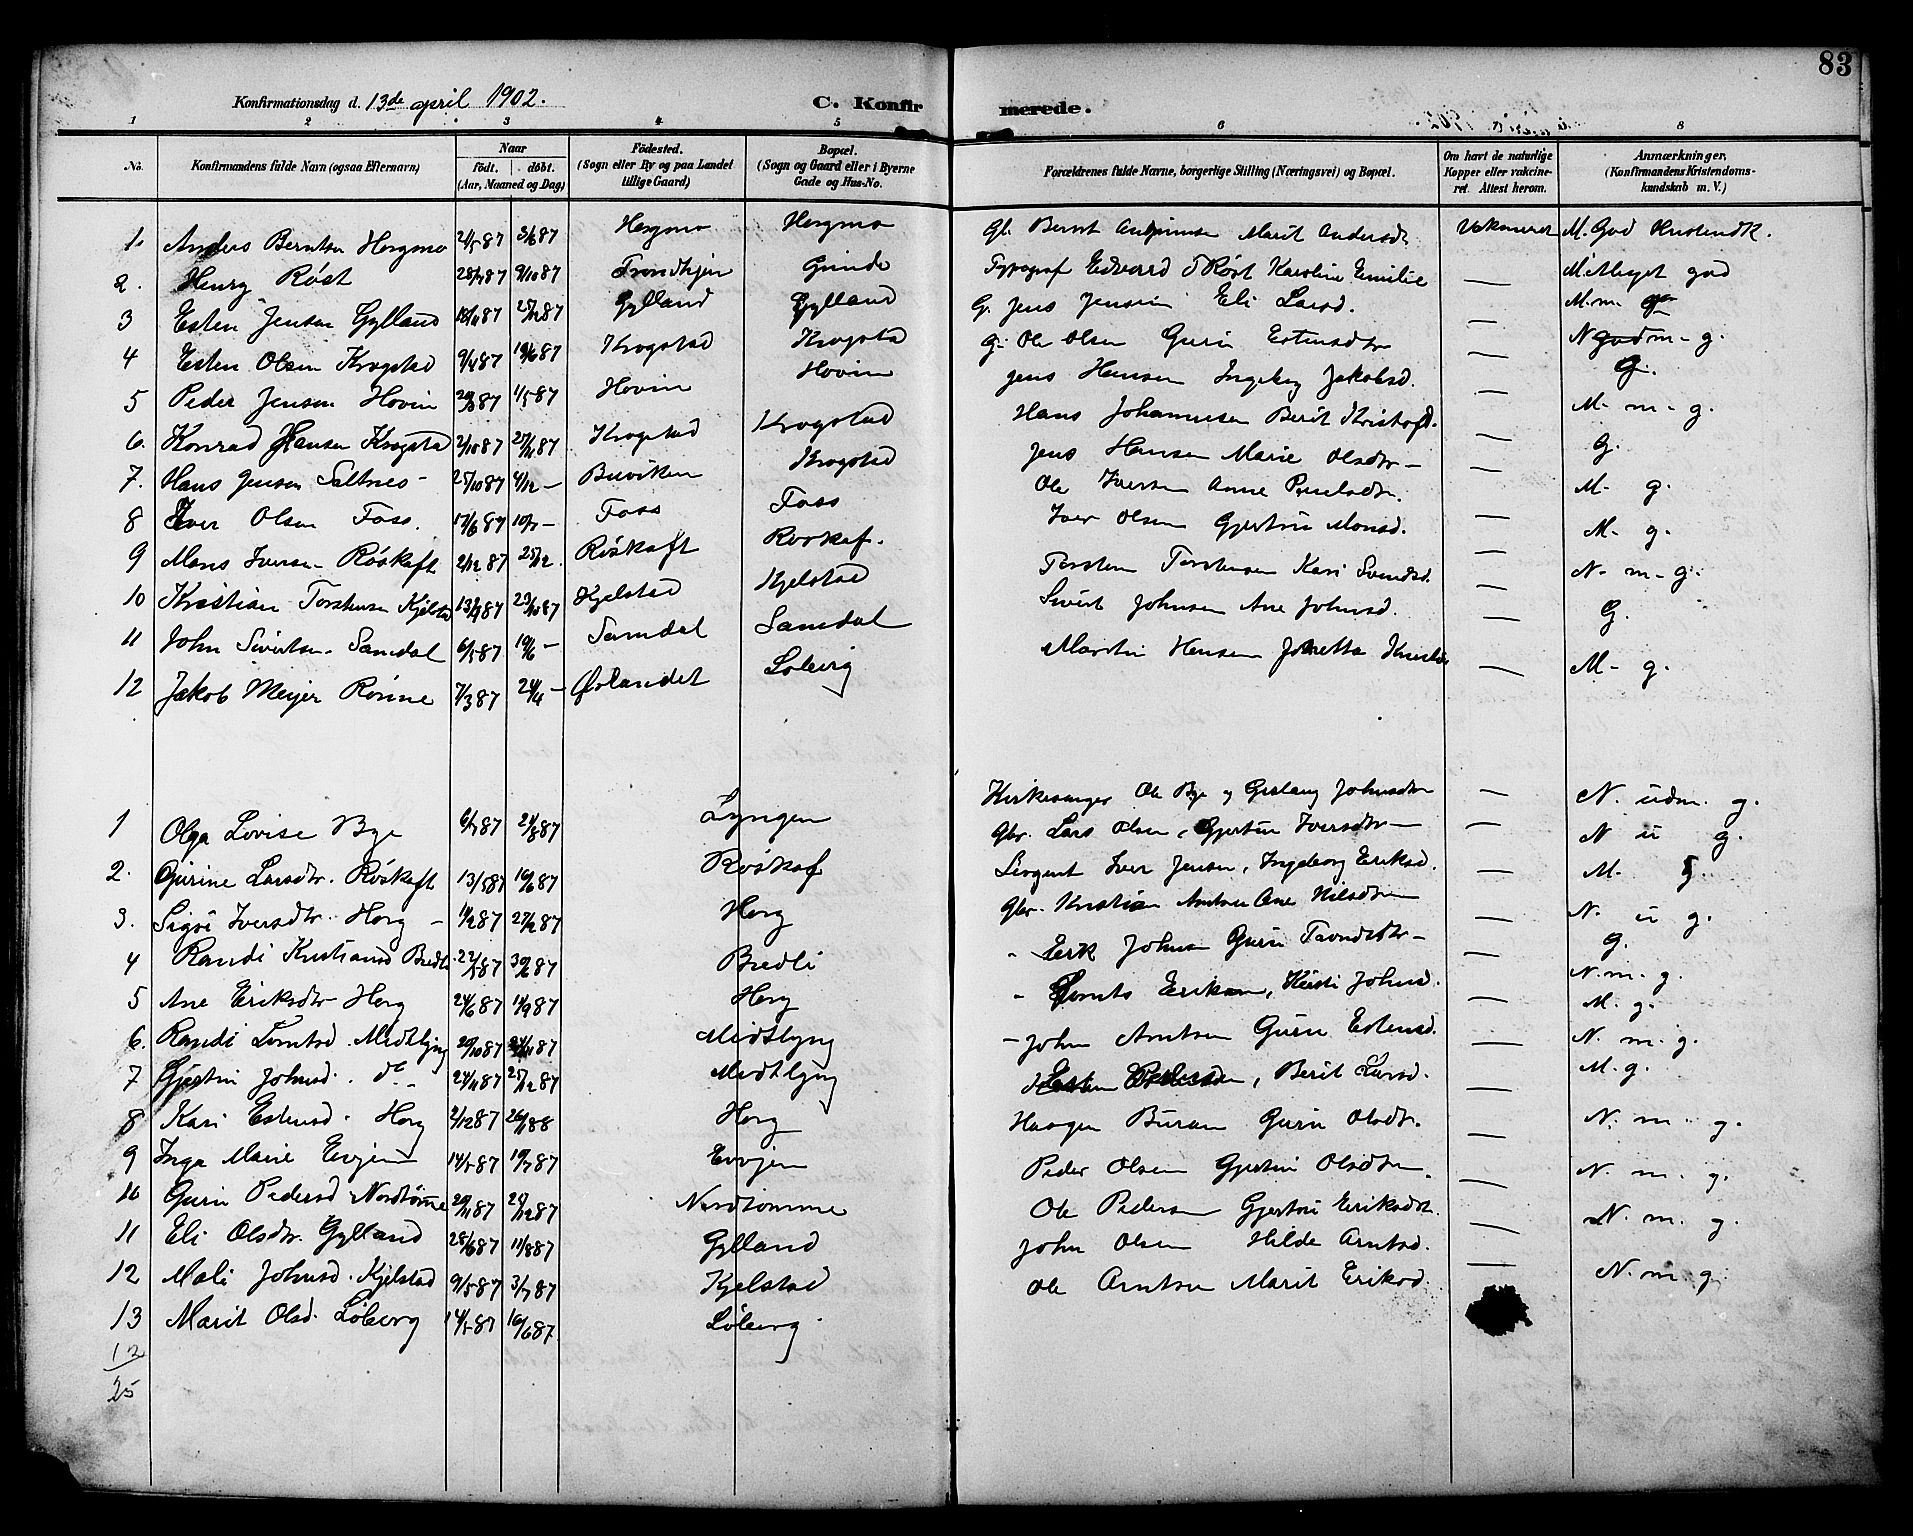 83
Konfirmationsdag d. 13de april 1902. C. Konfirmerede.
1 2 3 4 5 6 8
No. Konfirmandens fulde Navn (ogsaa Efternavn) Naar födt. döbt. (Aar, Maaned og Dag) Födested. (Sogn eller By og paa Landet tillige Gaard) Bopæl. (Sogn og Gaard eller i Byerne Gade og Hus-No. Forældrenes fulde Navne, borgerlige Stilling (Næringsvei) og Bopæl. Om havt de naturlige Kopper eller vakcineret. Attest herom. Anmærkninger. (Konfirmandens Kristendomskundskab m. V.)
1. Anders Berntsen Horgmo 2/5 87 3/6 87 Horgmo Horgmo Gb. Bernt Marit Andersdtr Vakcineret M. God
2. Henry Röst 28/7 87 9/10 87 Trondhjem Grinde Typograf Edvard Röst Karoline Emilie — M. Meget god
3 Esten Jensen Gylland 18/11 87 25/12 87 Gylland Gylland G. Jens Jensen Eli Larsd. — M. m. g
4 Esten Olsen Krogstad 9/4 87 19/6 87 Krogstad Krogsta G. Ole Olsen Guru Estensdtr — N god m- g.
5 Peder Jensen Hovin 20/3 87 1/5 87 Hovin Hovin Jens Hansen Ingebog Jakobsd. — G.
6. Konrad Hansen Krogsta 2/10 87 27/11 87 Krogstad Krogstad Hans Johannesen Berit Kristofd. — M- m- g.
7. Hans Jensen Saltnes 25/10 87 4/12 — Buviken Krogstad Jens Hansen Marie Olsdtr — G.
8 Iver Olsen Foss. 17/6 87 10/7 — Foss Foss Ole Iversen Anne — M- g.
9 Mons Iversen Röskaft 2/12 87 25/12. Röskaft Roskaf. Iver Olsen Gjertru Monsd. — M- g.
10 Kristian Torstensen Kjelstad 13/9 87 23/10 87 Kjelstad Kjelstad Torsten Torstensen Kari Svendsd. — N- m- g.
11 John Sivertsen Samdal 6/5 87 19/6 — Samdal Samdal Sivert Johnsen Ane Johnsd. — G.
12 Jakob Meyer Rönne 7/3 87 24/4 — Ørlandet Loberg Martin Hansen Jonetta — M- g.
1 Olga Lovise Bye 6/7 87 21/8 87 Lyngen Kirkesanger Ole Bye og Johnsdtr — N. udm. g.
2. Gurine Larsdtr. Röskaft 13/5 87 19/6 87 Röskaf Gbr. Lars Olsen, Gjertru Iversdtr — N u g.
3. Sigri Iversdtr. Horg 11/2 87 27/2 87 Horg Sergent Iver Jensen, Ingeborg Eriksd. — M.
4 Randi Kristiansd Bredli 22/5 87 30/6 87 Bredli Gbr. Kristian Arntsen Ane Nilsdtr — N. u g.
5 Ane Eriksdtr Horg 24/6 87 11/9 87 Horg - Erik Johnsen Guru Trondsdtr — G.
6. Randi Lorntsd. Midtlyng 20/10 87 87 Midtlyng - Lornts Eriksen, Kirsti Johnsd. — N. m. g.
7 Gjertru Johnsd. do 24/11 87 25/12 87 Midtlyng - John Arntsen Guru Estensd. — M. g.
8 Kari Estensd. Horg 2/12 87 26/1 88 Horg Esten Pedersen, Berit Larsd. — N. m. g.
9 Inga Marie Evjen 14/5 87 10/7 87 Evvjen Haagen Buran Guru Olsdtr. — M. g.
10 Guru Pedersd. Nordtömme 20/11 87 25/12 87 Nordtömme Peder Olsen Gjertru Olsdtr — N. m. g.
11 Eli Olsdtr. Gylland 28/6 87 11/8 87 Gylland Ole Pedersen Gjertru Eriksdt. — N. m. g.
12 Mali Johnsd. Kjelstad 9/5 87 3/7 87 Kjelstad John Olsen Hilde Arntsd. — N. m. g.
13 Marit Olsd. Löberg 14/5 87 19/6 87. Löberg Ole Arntsen Marit Eriksd. — N. m. g.
12
25